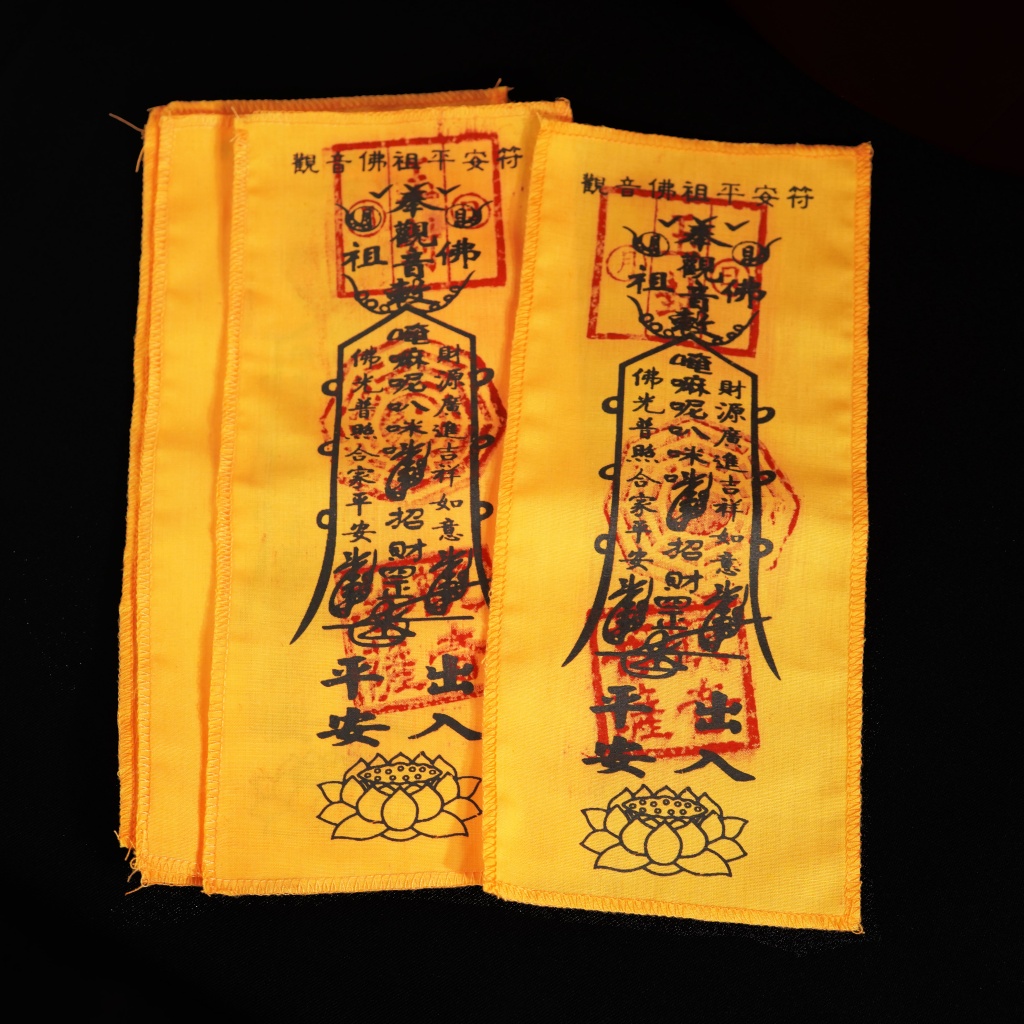 觀音佛祖平安符
奉觀音
月
日
佛
祖
唵嘛呢叭咪
招財
財源廣進吉祥如意
佛光普照合家平安
出入
平安
觀音佛祖平安符
奉觀音
月
日
佛
祖
唵嘛呢叭咪
招財
財源廣進吉祥如意
佛光普照合家平安
出入
平安